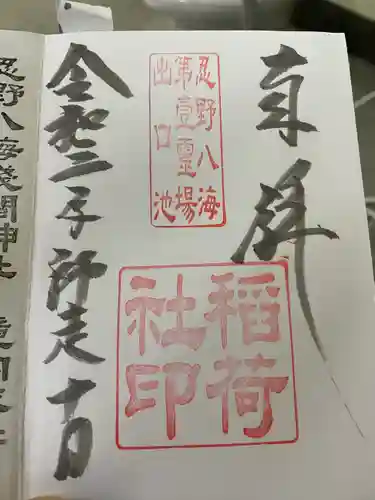 奉拝
忍野八海
第壹霊場
出口池
稲荷
社印
令和二子師走十一日
忍野八海浅間神社